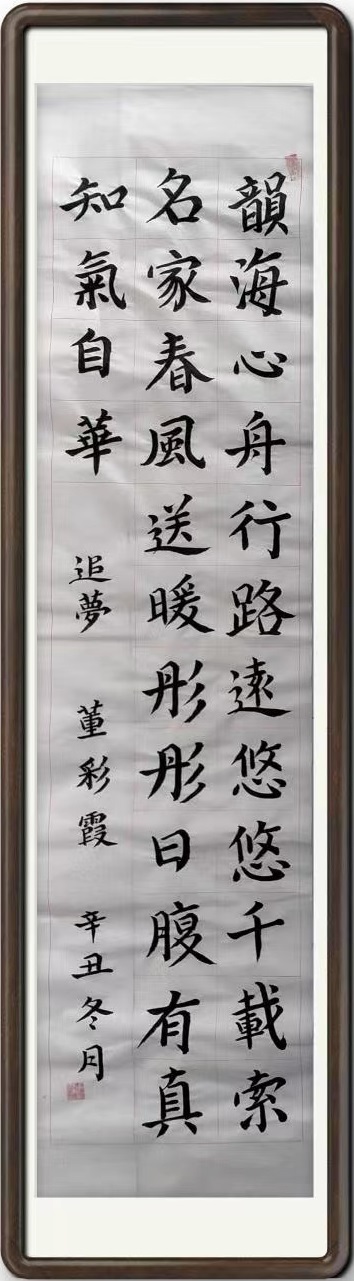 韻海心舟行路遠悠悠千載索
名家春風送暖彤彤日腹有真
知氣自華
追夢 董彩霞 辛丑冬月